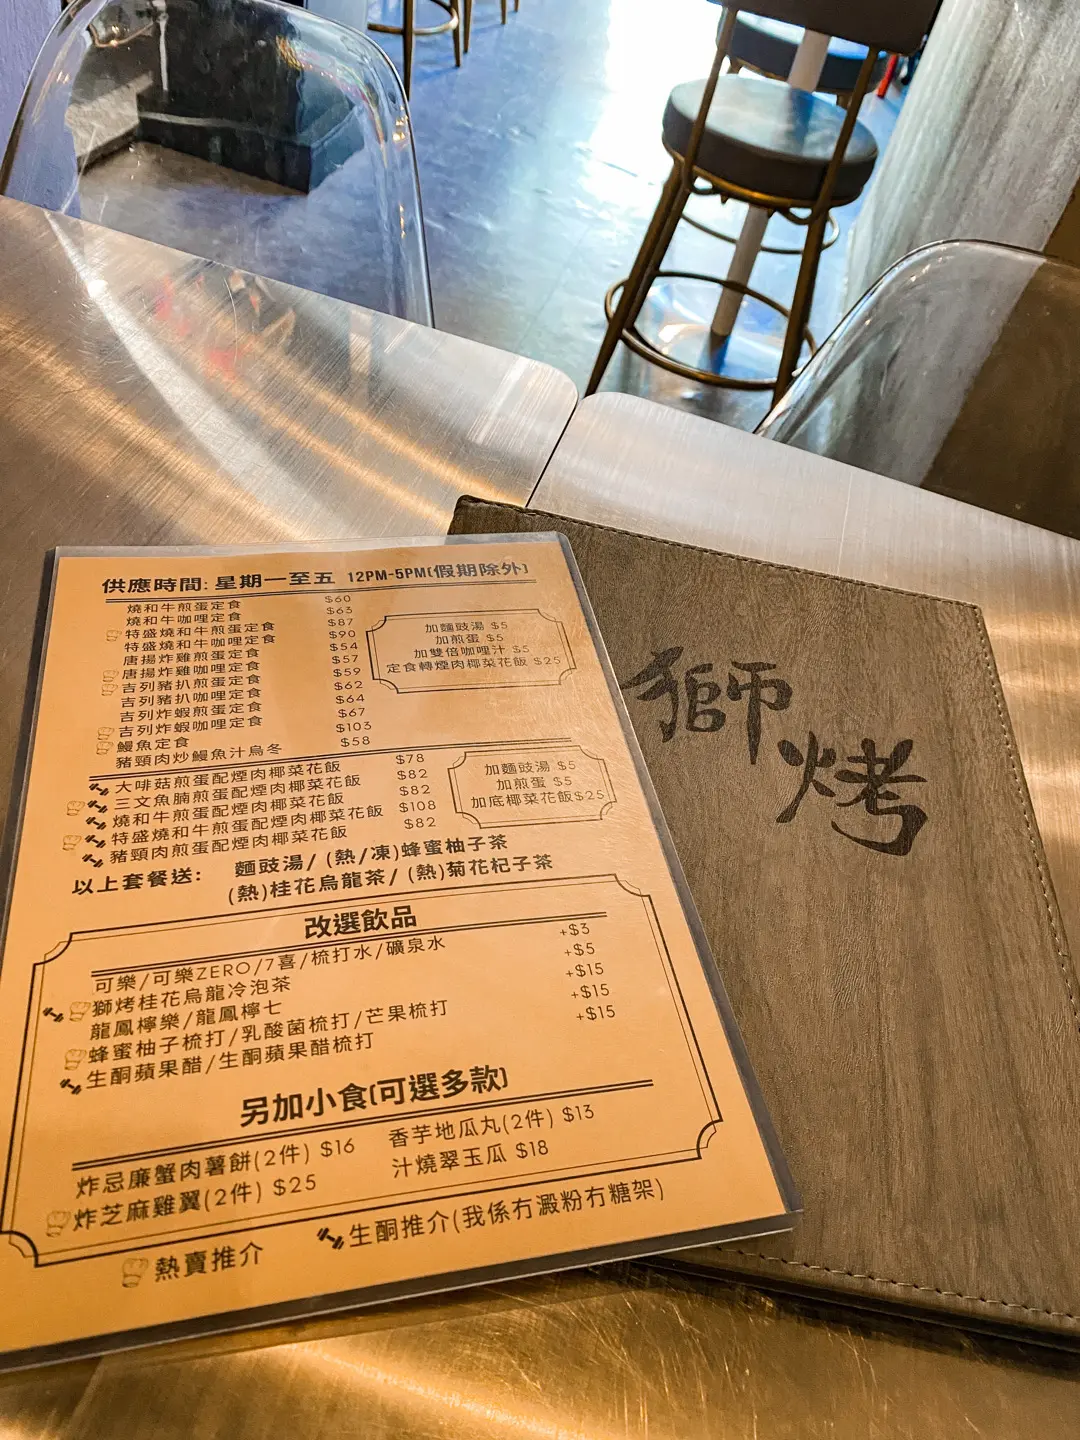 供應時間: 星期一至五 12PM-5PM(假期除外)
燒和牛煎蛋定食 $60
燒和牛咖哩定食 $63
特盛燒和牛煎蛋定食 $87
特盛燒和牛咖哩定食 $90
唐揚炸雞煎蛋定食 $54
唐揚炸雞咖哩定食 $57
吉列豬扒煎蛋定食 $59
吉列豬扒咖哩定食 $62
吉列炸蝦煎蛋定食 $64
吉列炸蝦咖哩定食 $67
鰻魚定食 $103
豬頸肉炒鰻魚汁烏冬 $58
加麵豉湯 $5
加煎蛋 $5
加雙倍咖哩汁 $5
定食轉煙肉椰菜花飯 $25
大啡菇煎蛋配煙肉椰菜花飯 $78
三文魚腩煎蛋配煙肉椰菜花飯 $82
燒和牛煎蛋配煙肉椰菜花飯 $82
特盛燒和牛煎蛋配煙肉椰菜花飯 $108
豬頸肉煎蛋配煙肉椰菜花飯 $82
加麵豉湯 $5
加煎蛋 $5
加底椰菜花飯$25
以上套餐送: 麵豉湯/ (熱/凍)蜂蜜柚子茶
(熱)桂花烏龍茶/ (熱)菊花杞子茶
改選飲品
可樂/可樂ZERO/7喜/梳打水/礦泉水 +$3
獅烤桂花烏龍冷泡茶 +$5
龍鳳檸樂/龍鳳檸七 +$15
蜂蜜柚子梳打/乳酸菌梳打/芒果梳打 +$15
生酮蘋果醋/生酮蘋果醋梳打 +$15
另加小食(可選多款)
炸忌廉蟹肉薯餅(2件) $16
香芋地瓜丸(2件) $13
炸芝麻雞翼(2件) $25
汁燒翠玉瓜 $18
熱賣推介
生酮推介(我係冇澱粉冇糖架)
獅烤